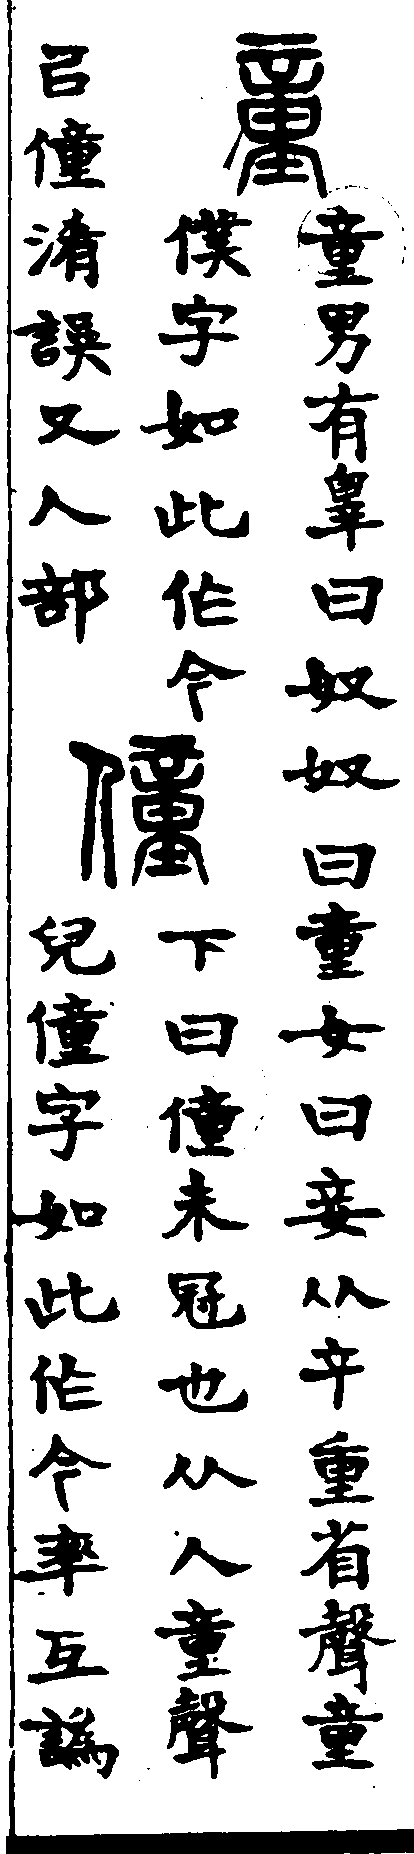 童
童男有辠曰奴奴曰童女曰妾从䇂重省聲童
僕字如此作今
㠯僮淆誤又人部
僮
下曰僮未冠也从人童聲
兒僮字如此作今率互譌